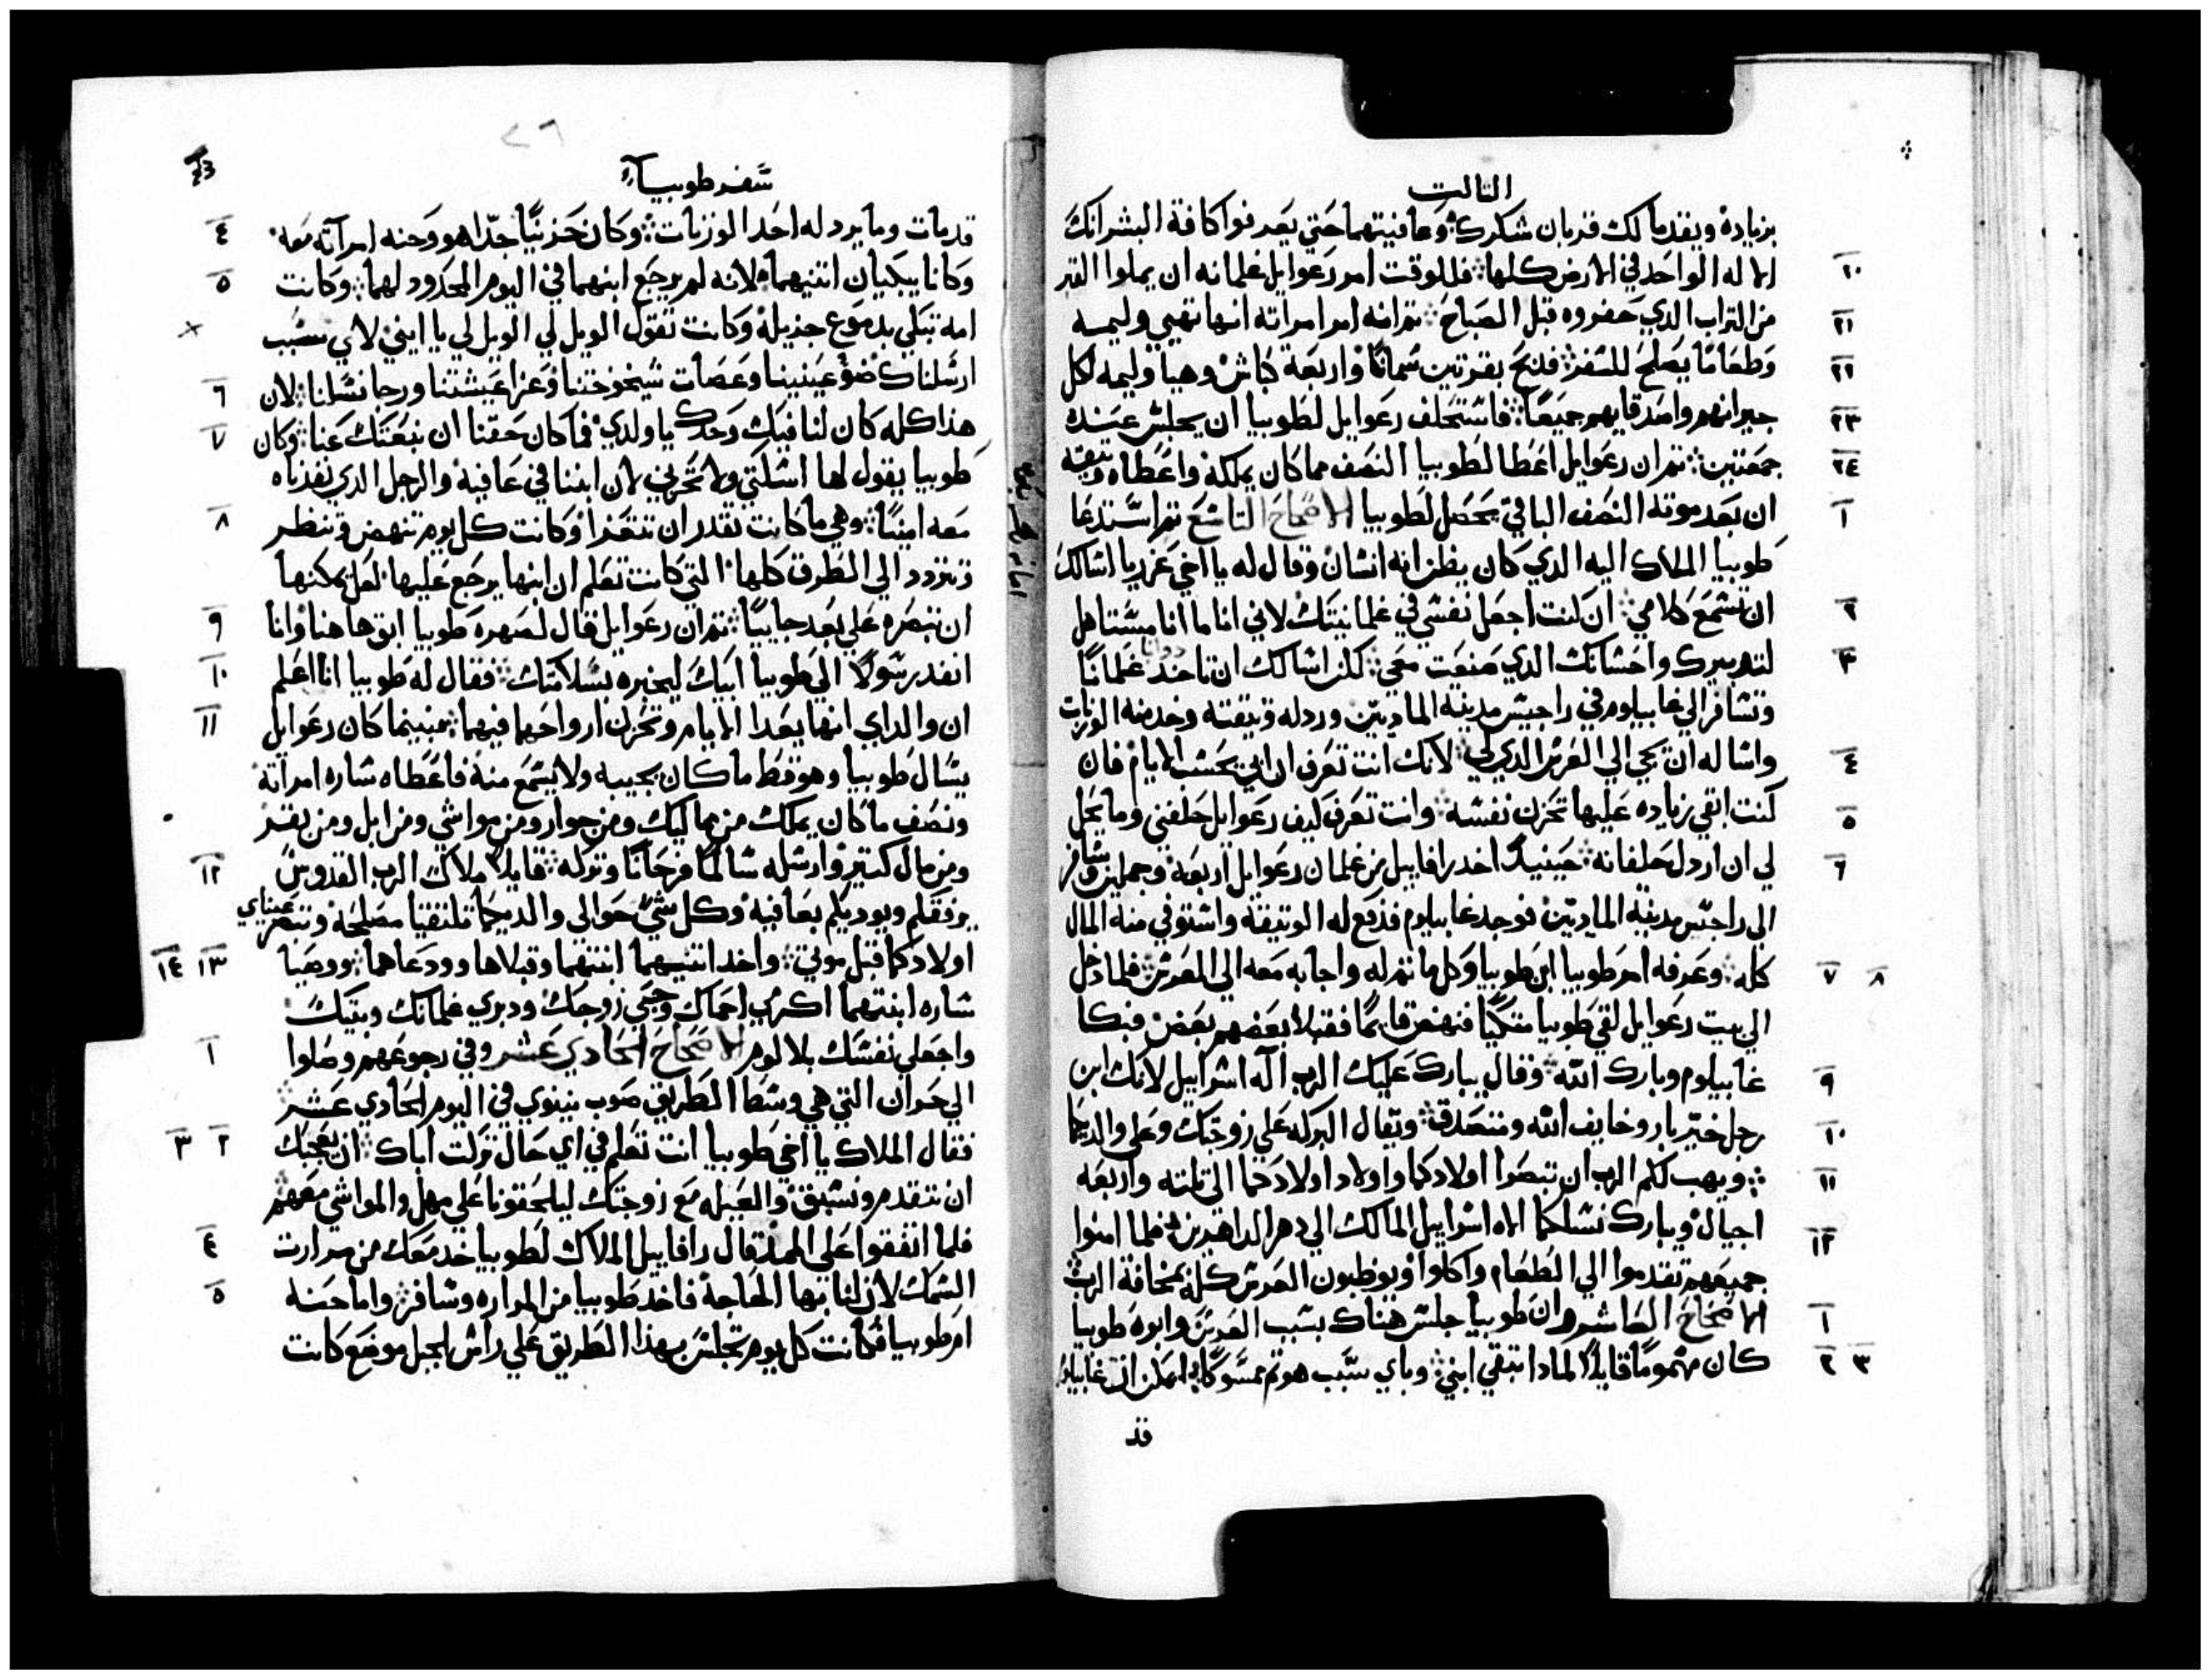 الثالث
بزياده ويقدما لك قربان شكرك وعافيتهما حتي يعرفوا كافة البشر انك
٢٠ الاله الواحد في الارض كلها فللوقت امر رعوايل غلمانه ان يملوا القبر
٢١ من التراب الدي حفروه قبل الصباح ثم انه امر امراته انها تهيي وليمه
٢٢ وطعاما يصلح للسفر فدبح بقرتين سمانا واربعة كباش وهيا وليمه لكل
٢٣ جيرانهم واصدقايهم جميعا فاستحلف رعوايل لطوبيا ان يجلس عنده
٢٤ جمعتين ثم ان رعوايل اعطا لطوبيا النصف مما كان يملكه واعطاه وثيقه
١ ان بعد موته النصف الباقي يحصل لطوبيا الاصحاح التاسع ثم استدعا
طوبيا الملاك اليه الدي كان يظن انه انسان وقال له يا اخي عزريا اسالك
٢ ان تسمع كلامي ان كنت اجعل نفسي في غلمانيتك لاني انا ما انا مستاهل
٣ لتدبيرك واحسانك الدي صنعت معي لكن اسالك ان تاخد دواب غلمانا
وتسافر الي غابيلوم في راجيس مدينة الماديين ورد له وثيقته وخد منه الوزنات
٤ واساله ان يجي الي العرس الدي لي لانك انت تعرف ان ابي يحسب الايام فان
٥ كنت ابقي زياده عليها تحزن نفسه وانت تعرف كيف رعوايل حلفني وما يحل
٦ لي ان اردل حلفانه حينيد اخد رافاييل من غلمان رعوايل اربعة وجملين وسافر
الي راجيس مدينة الماديين فوجد غابيلوم فدفع له الوثيقة واستوفي منه المال
٧ ٨ كله وعرفه امر طوبيا ابن طوبيا وكل ما تم له واجابه معه الي العرس فلما دخل
الي بيت رعوايل لقي طوبيا متكيا فنهض قايما فقبلا بعضهم بعض فبكا
٩ غابيلوم وبارك الله وقال يبارك عليك الرب اله اسراييل لانك ابن
١٠ رجل خير بار وخايف الله ومتصدق وتقال البركه علي زوجتك وعلي والديكما
١١ ويهب لكم الرب ان تبصروا اولادكما واولاد اولادكما الي تالته واربعه
اجيال ويبارك نسلكما الاه اسراييل المالك الي دهر الداهرين فلما امنوا
١٢ جميعهم تقدموا الي الطعام واكلوا ويوظبون العرس كله بمخافة الرب
١ الاصحاح العاشر وان طوبيا جلس هناك بسبب العرس وابوه طوبيا
٢ ٣ كان مهموما قايلا لمادا تبقي ابني وباي سبب هو ثم مسوكا ايمكن ان غابيلوم
قد
سفر طوبيا
قد مات وما يرد له احد الوزنات وكان حزنيا جدا هو وحنه امرآته معه ٤
وكانا يبكيان اتنيهما لانه لم يرجع ابنهما في اليوم المحدود لهما وكانت ٥
امه تبكي بدموع جزيله وكانت تقول الويل لي الويل لي يا ابني لاي سبب
ارسلناك ضو عينينا وعصات شيخوختنا وعزا عيشتنا ورجا نسلنا لان ٦
هدا كله كان لنا فيك وحدك يا ولدي فما كان حقنا ان نبعتك عنا وكان ٧
طوبيا يقول لها اسكتي ولا تحزني لان ابننا في عافية والرجل الدي نفدناه
معه امينا وهي ما كانت تقدر ان تتعزا وكانت كل يوم تنهض وتنظر ٨
وتزود الي الطرق كلها التي كانت تعلم ان ابنها يرجع عليها لعل يمكنها
ان تبصره علي بعد جاييا ثم ان رعوايل قال لصهره طوبيا ابق هاهنا وانا ٩
انفد رسولا الي طوبيا ابيك ليخبره بسلامتك فقال له طوبيا انا اعلم ١٠
ان والداي انهما يعدا الايام وتحزن ارواحهما فيهما فبينما كان رعوايل ١١
يسال طوبيا وهو قط ما كان يجيبه ولا يسمع منه فاعطاه ساره امراته
ونصف ما كان يملك من مماليك ومن جوار ومن مواشي ومن ابل ومن بقر
ومن مال كتير وارسله سالما فرحانا وتركه قايلا ملاك الرب القدوس ١٢
يرفقكم ويوديكم بعافية وكل شي حوالي والديكما تلتقيا مصلحة وتبصر عيناي
اولادكما قبل موتي واخدا اتنيهما ابنتهما وقبلاها وودعاهما ووصيا ١٣ ١٤
ساره ابنتهما اكرمي احماك وحبي زوجك ودبري غلمانك وبيتك
واجعلي نفسك بلا لوم الاصحاح الحادي عشر وفي رجوعهم وصلوا ١
الي حران التي هي وسط الطريق صوب نينوي في اليوم الحادي عشر
فقال الملاك يا اخي طوبيا انت تعلم في اي حال تركت اباك ان يعجبك ٢ ٣
ان نتقدم ونسبق والعيله مع زوجتك ليلحقونا علي مهل والمواشي معهم
فلما اتفقوا علي المهل قال رافاييل الملاك لطوبيا خد معك من مرارت ٤
السمك لان لنا بها الحاجة فاخد طوبيا من المراره وسافر واما حنه ٥
ام طوبيا فكانت كل يوم تجلس بهدا الطريق علي راس الجبل موضع كانت